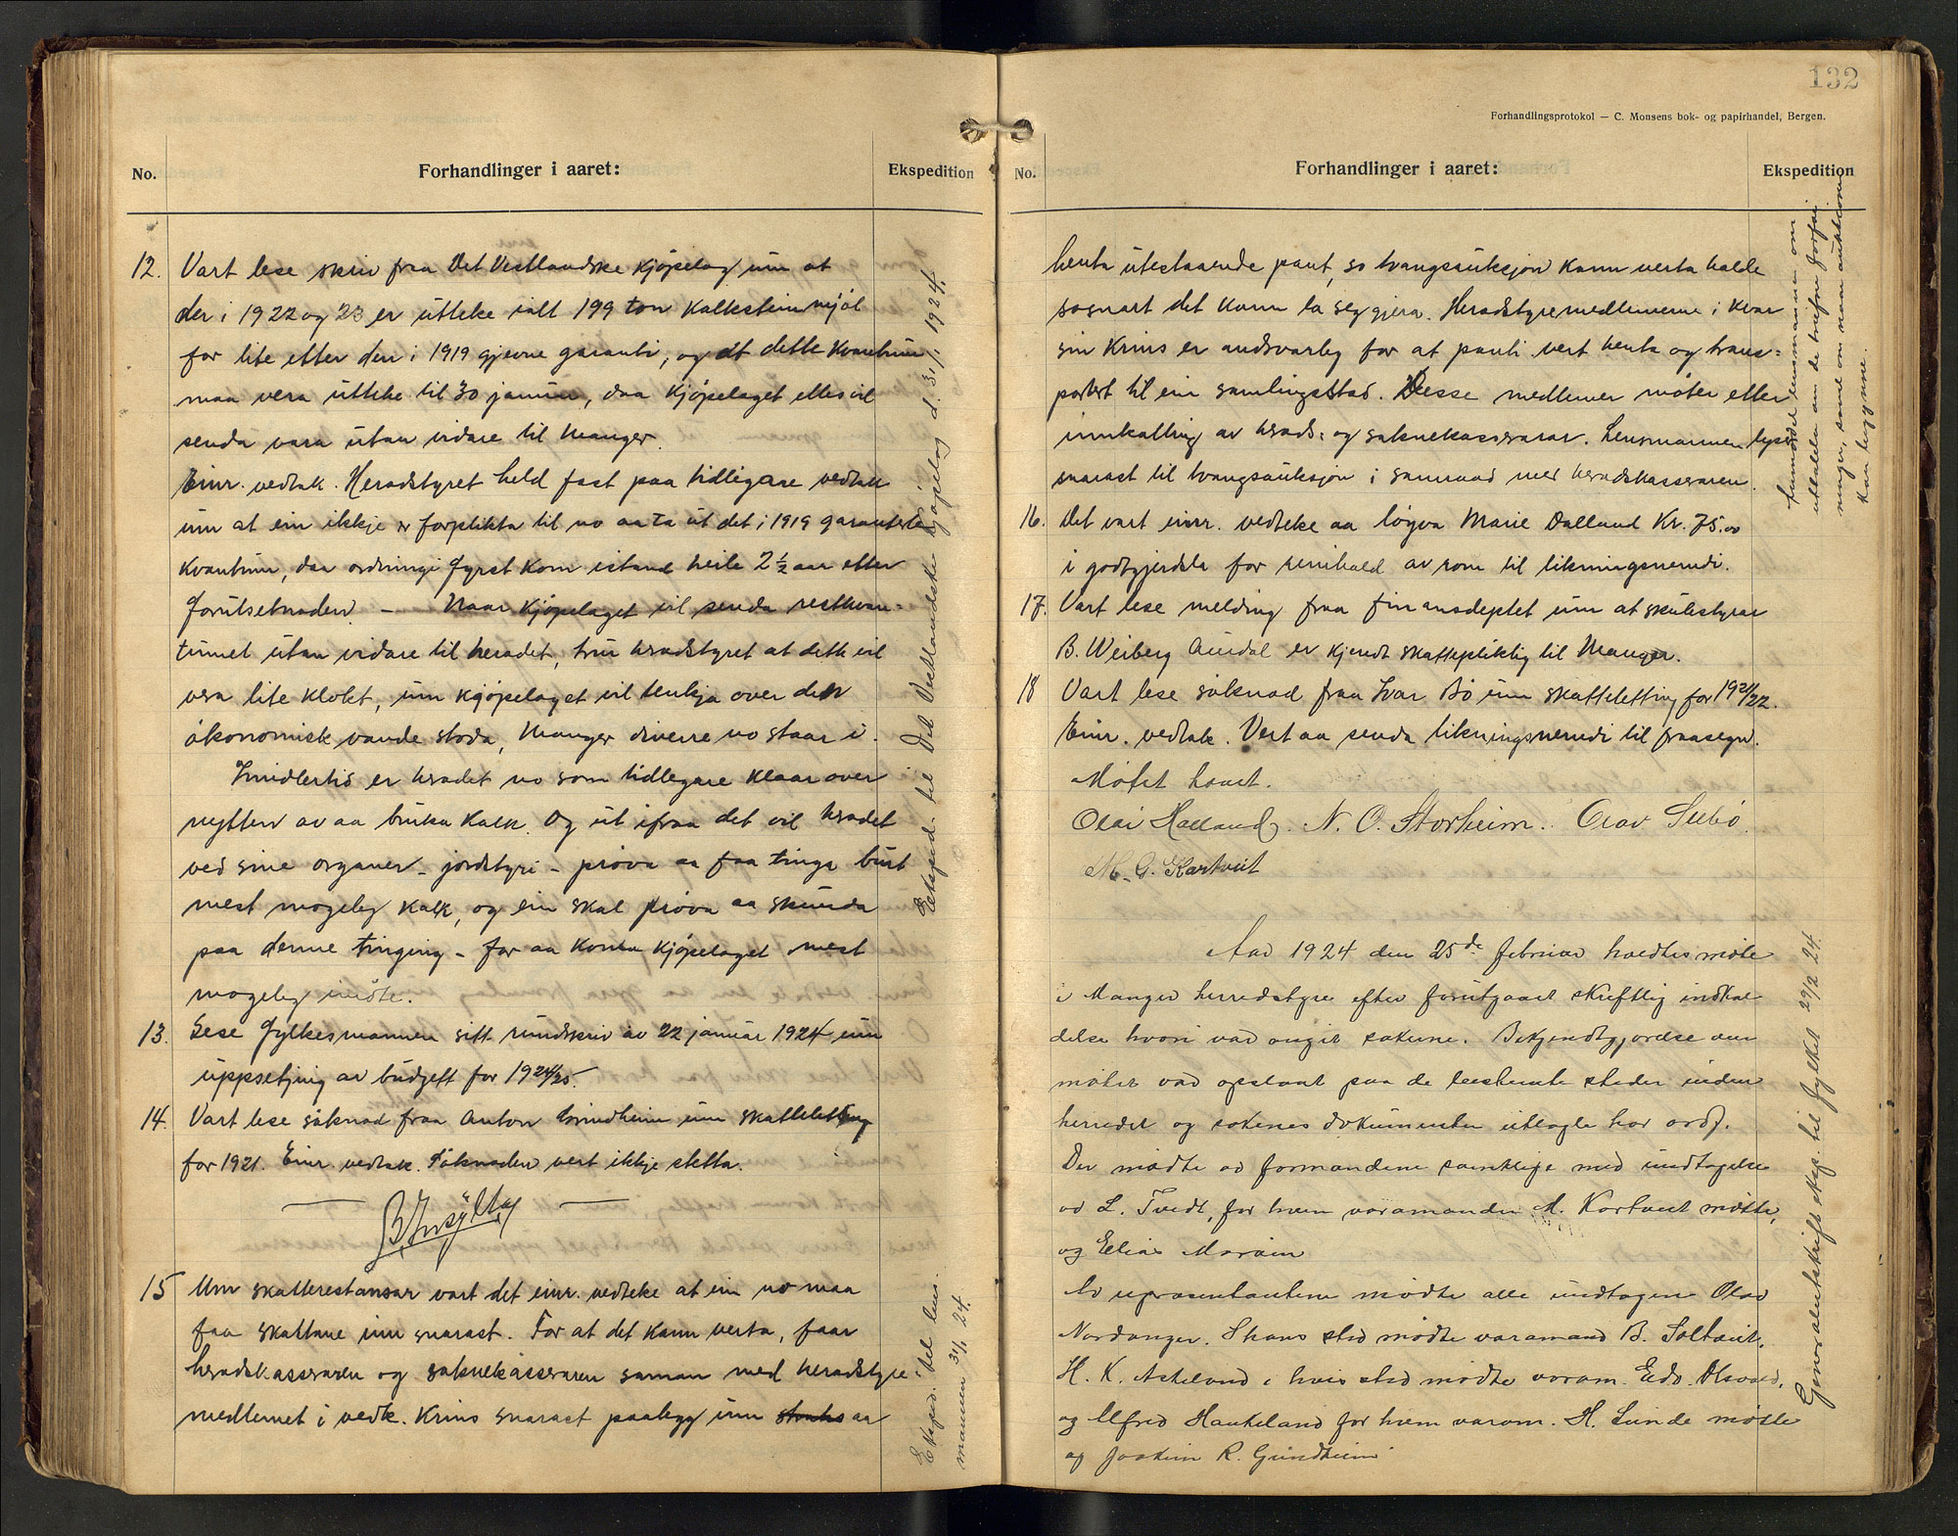 No.
Forhandlinger i aaret:
Ekspedition
12. Vart lese skriv fraa Det Vestlandske Kjöpelag um at
der i 1922 og 23 er útteke ialt 199 ton Kalksteinmjöl
for lite etter den i 1919 gjevne garanti, og at dette Kvantum
maa vera útteke til 30 januar, daa Kjöpelaget elles vil
senda vara útan vidare til Manger.
Einr. vedtak. Heradstyret held fast paa tidligare vedtak
um at ein ikkje er forplikta til no aa ta út det i 1919 garanterte
Kvantum, daa ordningi fyrst kom istand heile 2½ aar etter
forútsetnaden. — Naar Kjöpelaget vil senda restkvan-
tumet útan vidare til heradet, trur heradstyret at dette vil
vera lite klokt, um Kjöpelaget vil tenkja over den
ökonomisk vande stoda, Manger diverre no staar i.
Imidlertid er heradet no som tidlegare klaar over
nytten av aa bruka Kalk. Og út ifraa det vil heradet
ved sine organer - jordstyri - pröva aa faa tinga burt
mest mogeleg Kalk, og ein skal pröva aa skunda
paa denne tinging - for aa koma Kjöpelaget mest
mogeleg imöte.
13. Lese Fylkesmannen sitt rúndskriv av 22 januar 1924 um
úppsetjing av búdgett for 1924/25.
14. Vart lese söknad fraa Anton Grindheim um skatteletting
for 1921. Einr. vedtak. Söknaden vert ikkje stetta.
15 Um skatterestansar vart det einr. vedteke at ein no maa
faa skattane inn snarast. For at det kann verta, faar
heradskasseraren og soknekasseraren saman med heradstyre-
medlemet i vedk. Krins snarast paalegg um aa
Ekspd. til Det Vestlandske Kjöpelag d. 31/1 1924.
Ekspd. til lens-
mannen 31/1 24.
132
Forhandlingsprotokol — C. Monsens bok- og papirhandel, Bergen.
No.
Forhandlinger i aaret:
Ekspedition
henta útestaaende pant, so tvangsauksjon kann verta halde
sosnart det kann la seg gjera. Heradstyremedlemerne i kvar
sin Krins er andsvarleg for at panti vert henta og trans-
portert til ein samlingsstad. Desse medlemer möter etter
innkalling av herads- og soknekasserarar. Lensmannen lyser
snarast til tvangsauksjon i samraad med heradskasseraren.
16. Det vart einr. vedteke aa löyva Marie Dalland Kr. 75.00
i godtgjerdsla for reinhald av rom til likningsnemdi.
17. Vart lese melding fraa Finansdeptet um at skulestyrar
B. Weiberg Aurdal er kjendt skattepliktig til Manger.
18 Vart lese söknad fraa Ivar Bö um skatteletting for 1921/22.
Einr. vedtak. Vert aa senda likningsnemdi til fraasegn.
Mötet hævt.
Olai Halland. N. O. Storheim. Olav Sæbö.
M. G. Kartveit
Aar 1924 den 25de februar holdtes möte
i Manger herredstyre efter forutgaaet skriftlig indkal
delse hvori var angit sakerne. Bekjendtgjørelse om
mötet var opslaat paa de bestemte steder inden
herredet og sakenes dokumenter utlagte hos ordf.
Der mødte av formændene samtlige med undtagelse
av L. Tvedt, for hvem varamanden M. Kartveit mötte,
og Elias Maröen
Av representantene mødte alle undtagen Olav
Nordanger. I hans sted mødte varamand B. Soltveit,
H. K. Askeland i hvis sted mødte varam. Edv.
og Alfred Haukeland for hvem varam. H. Lunde møtte
og Joakim R. Grindheim
lensmannen om
uttalelse om de
kan begynne.
Generalutskrift eksp. til fylket 29/2 24.